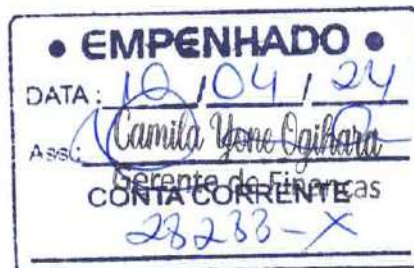 • EMPENHADO •
DATA: 12/04/24
Ass:
Camila Yone Ogihara
Gerente de Finanças
CONTA CORRENTE
28233-X